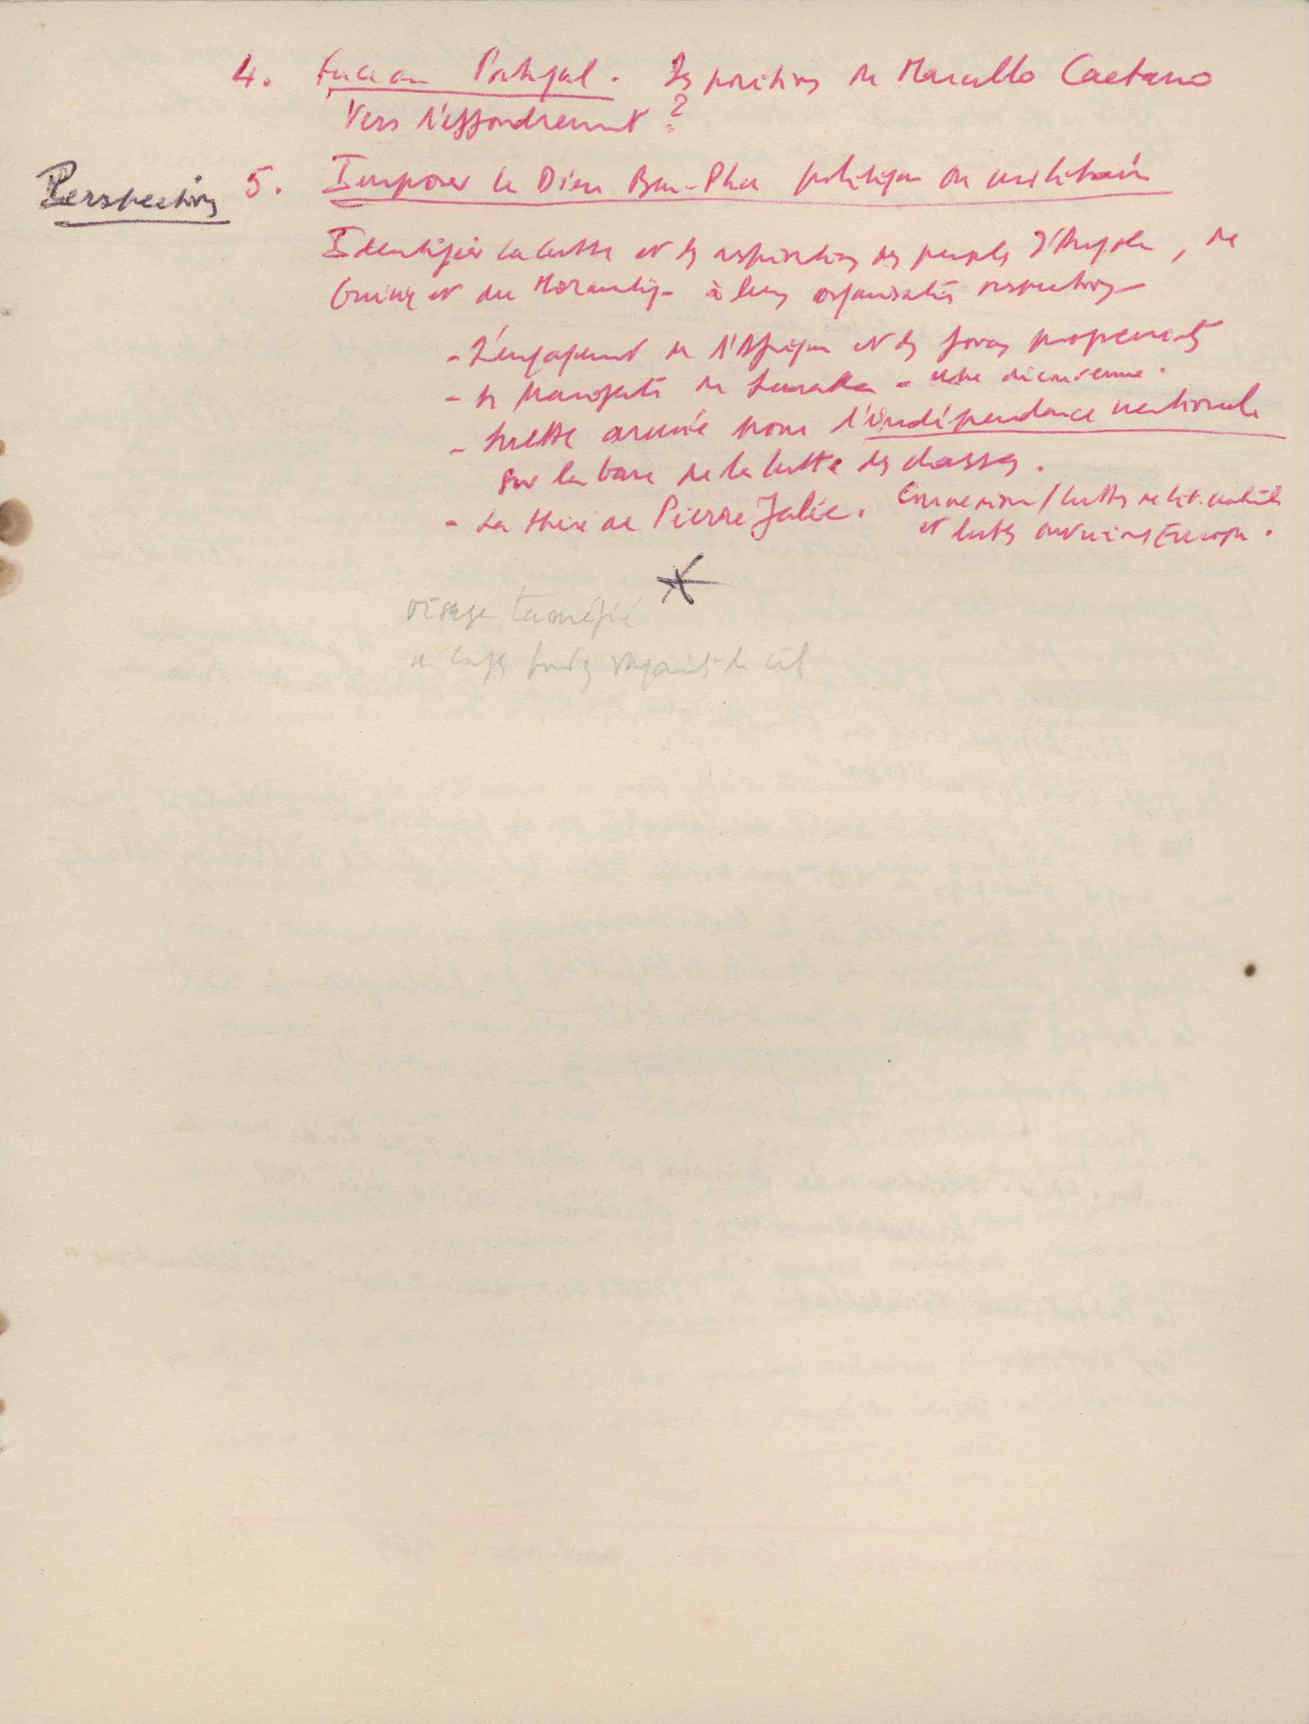 4. Face au Portugal. Les positions de Marcello Caetano
Vers l'effondrement ?
Perspectives 5. Imposer le Dien Bien-Phu politique ou militaire
Identifier la lutte et les aspirations des peuples d'Angola, de
Guinée et du Mozambique à leurs organisations respectives
- L'engagement de l'Afrique et des forces progressistes
- Le Manifeste de Lusaka -
- Lutte armée pour l'indépendance nationale
sur la base de la lutte des classes.
- La thèse de Pierre Jalée. Connexion / luttes
et luttes ouvrières Europe.
visage tuméfié